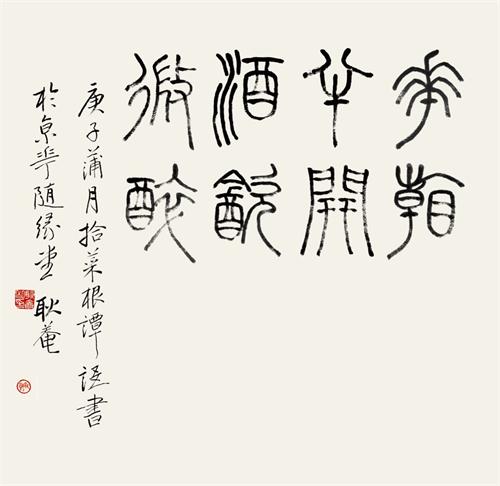 華看
半開
酒飲
微醉
庚子蒲月拾菜根譚語書
於京華随緣堂 耿菴